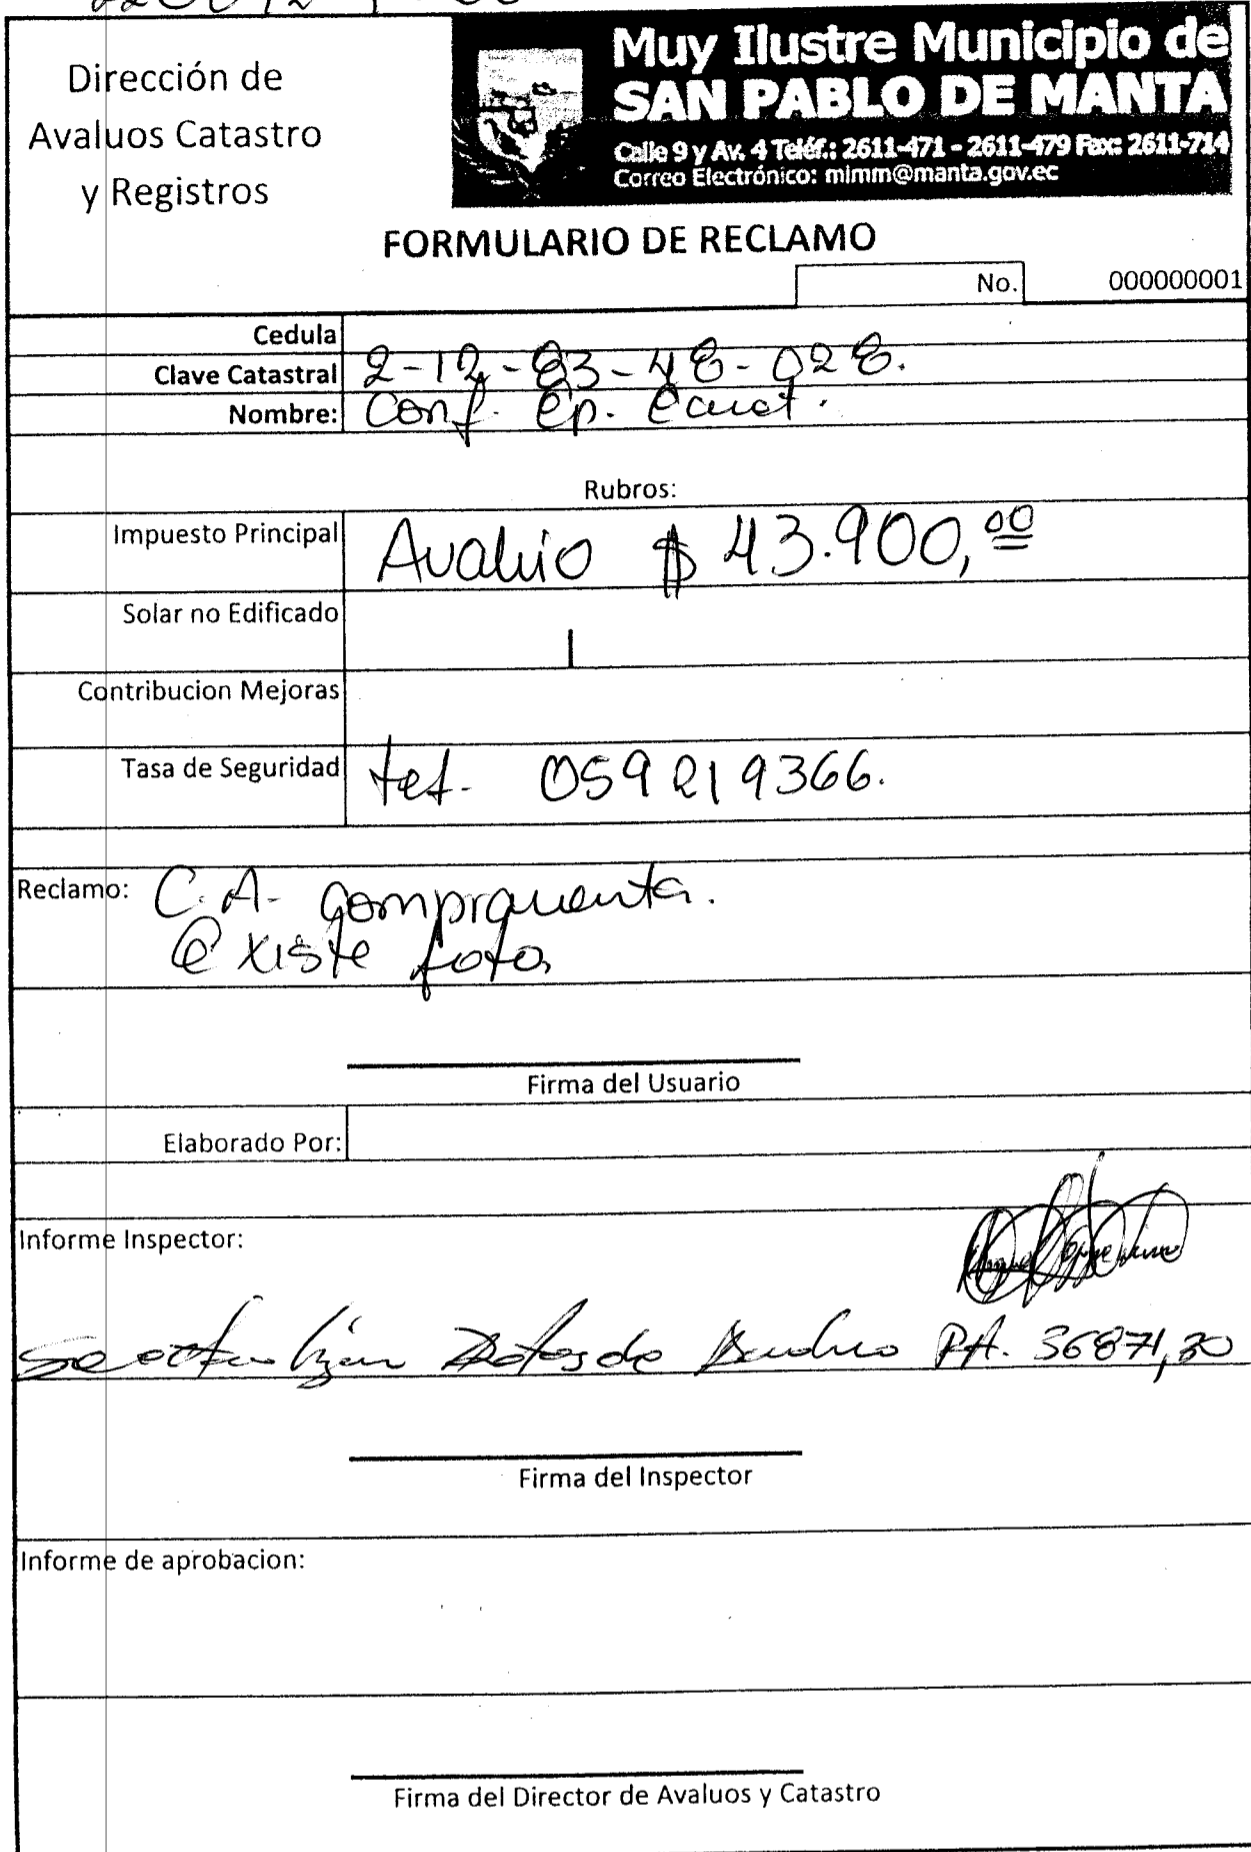 Dirección de
Avaluos Catastro
y Registros
Muy Ilustre Municipio de
SAN PABLO DE MANTA
Calle 9 y Av. 4 Teléf.: 2611-471 - 2611-479 Fax: 2611-714
Correo Electrónico: mimm@manta.gov.ec
FORMULARIO DE RECLAMO
No. 000000001
Cedula
Clave Catastral 2-12-83-48-028.
Nombre: Conf. Ep. Ecuat.
Rubros:
Impuesto Principal Avaluo $ 43.900,00
Solar no Edificado
Contribucion Mejoras
Tasa de Seguridad tel. 059219366.
Reclamo: C.A. compraventa.
existe foto,
Firma del Usuario
Elaborado Por:
Informe Inspector:
Se Datos de PA. 36871,30
Firma del Inspector
Informe de aprobacion:
Firma del Director de Avaluos y Catastro